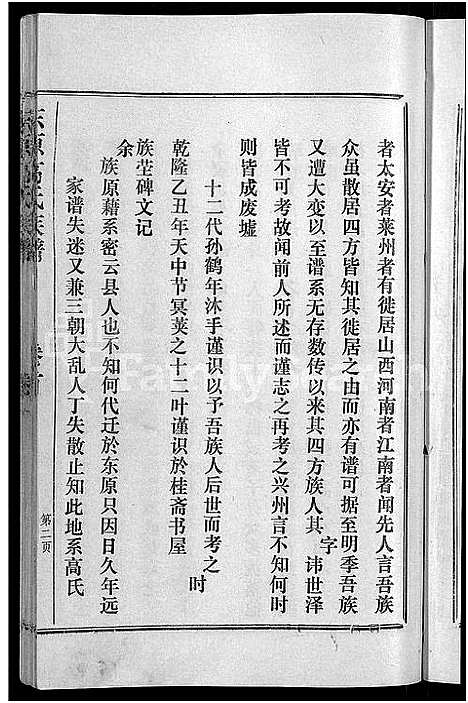 者太安者莱州者有徙居山西河南者江南者闻先人言吾族
众虽散居四方皆知其徙居之由而亦有谱可据至明季吾族
又遭大变以至谱系无存数传以来其四方族人其字讳世泽
皆不可考故闻前人所述而谨志之再考之兴州言不知何时
则皆成废墟
十二代孙鹤年沐手谨识以予吾族人后世而考之
时
乾隆乙丑年天中节冥荚之十二叶谨识於桂斋书屋
族茔碑文记
余
族原藉系密云县人也不知何代迁於东原只因日久年远
家谱失迷又兼三朝大乱人丁失散止知此地系高氏
东原高氏族谱
卷首
第二页